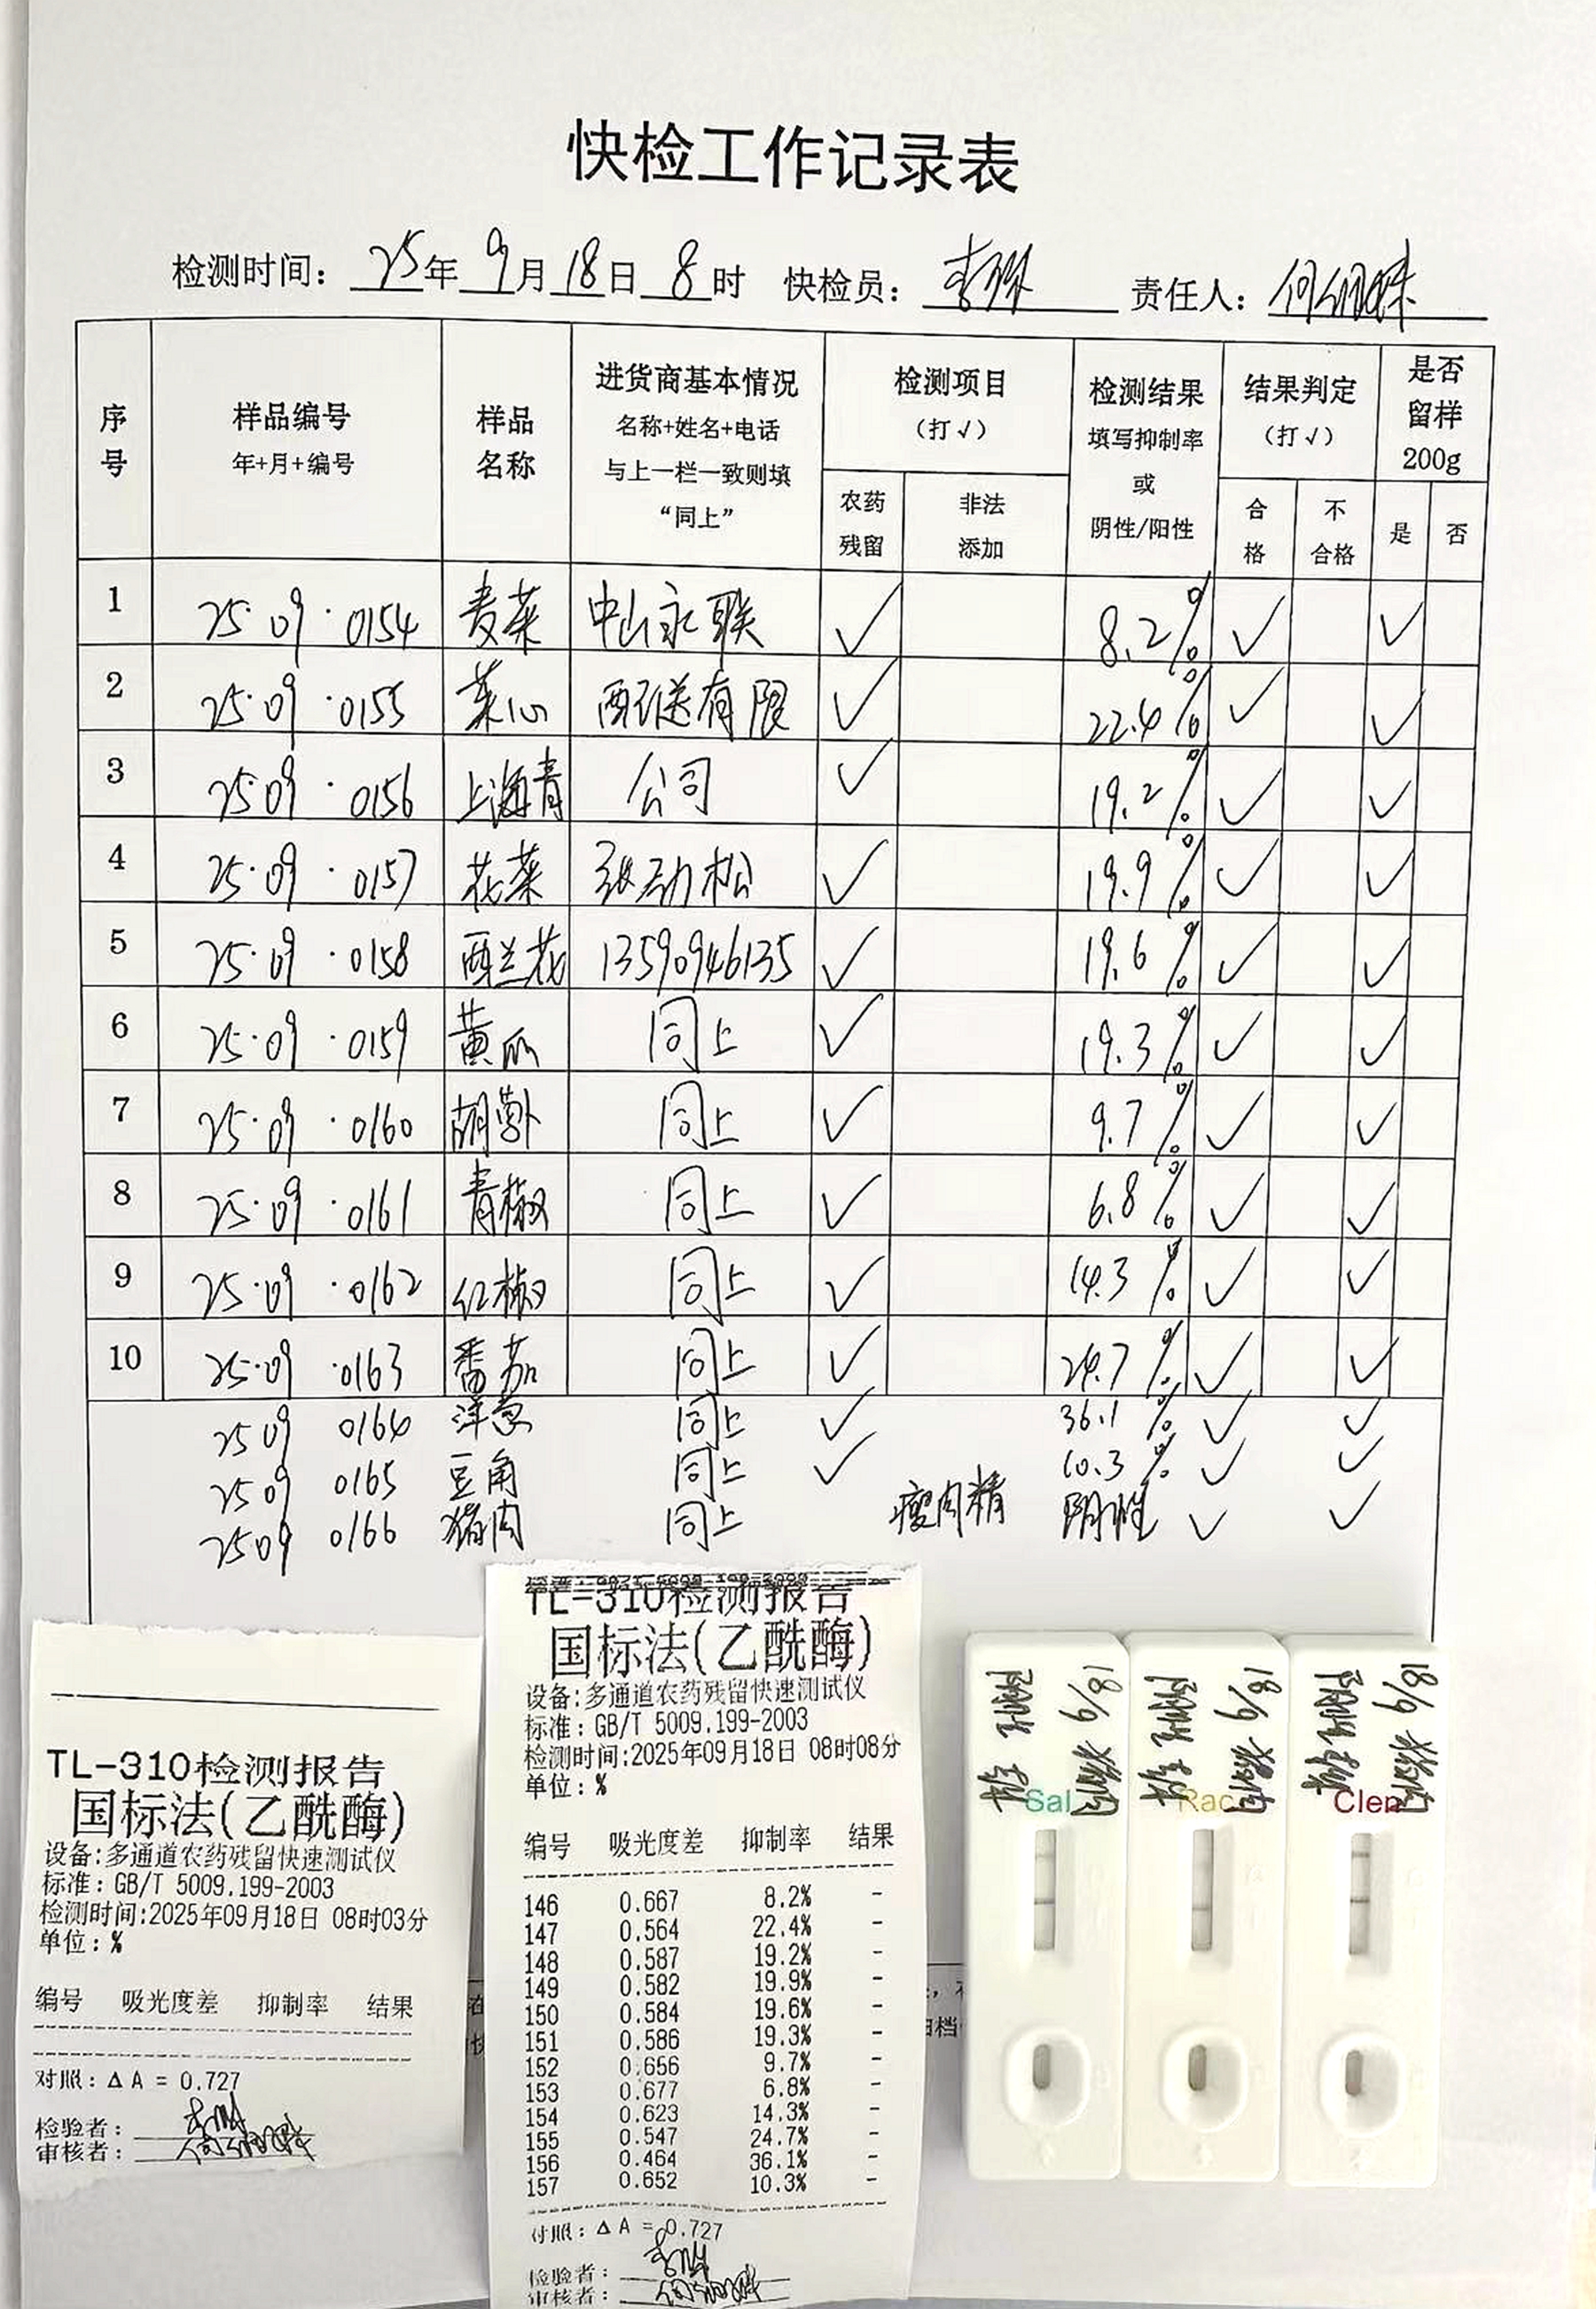 快检工作记录表
检测时间: 25年 9月18日 8时 快检员: 责任人:
序号 样品编号 年+月+编号 样品名称 进货商基本情况 名称+姓名+电话 与上一栏一致则填 “同上” 检测项目 (打√) 农药残留 非法添加 检测结果 填写抑制率 或 阴性/阳性 结果判定 (打√) 合格 不合格 是否留样 200g 是 否
1 25·09·0154 麦菜 中山永联 ✓ 8.2% ✓ ✓
2 25·09·0155 菜心 配送有限 ✓ 22.4% ✓ ✓
3 25·09·0156 上海青 公司 ✓ 19.2% ✓ ✓
4 25·09·0157 花菜 张劲松 ✓ 19.9% ✓ ✓
5 25·09·0158 西兰花 13590946135 ✓ 19.6% ✓ ✓
6 25·09·0159 黄瓜 同上 ✓ 19.3% ✓ ✓
7 25·09·0160 胡萝卜 同上 ✓ 9.7% ✓ ✓
8 25·09·0161 青椒 同上 ✓ 6.8% ✓ ✓
9 25·09·0162 红椒 同上 ✓ 14.3% ✓ ✓
10 25·09·0163 番茄 同上 ✓ 24.7% ✓ ✓
2509 0164 洋葱 同上 ✓ 36.1% ✓ ✓
2509 0165 豆角 同上 ✓ 10.3% ✓ ✓
2509 0166 猪肉 同上 瘦肉精 阴性 ✓ ✓
TL-310检测报告
国标法(乙酰酶)
设备:多通道农药残留快速测试仪
标准: GB/T 5009.199-2003
检测时间:2025年09月18日 08时03分
单位: %
编号 吸光度差 抑制率 结果
对照: Δ A = 0.727
检验者:
审核者:
TL-310检测报告
国标法(乙酰酶)
设备:多通道农药残留快速测试仪
标准: GB/T 5009.199-2003
检测时间:2025年09月18日 08时08分
单位: %
编号 吸光度差 抑制率 结果
146 0.667 8.2% -
147 0.564 22.4% -
148 0.587 19.2% -
149 0.582 19.9% -
150 0.584 19.6% -
151 0.586 19.3% -
152 0.656 9.7% -
153 0.677 6.8% -
154 0.623 14.3% -
155 0.547 24.7% -
156 0.464 36.1% -
157 0.652 10.3% -
对照: Δ A = 0.727
检验者:
审核者:
18/9 阴性 Sal
18/9 阴性 Rac
18/9 阴性 Clen